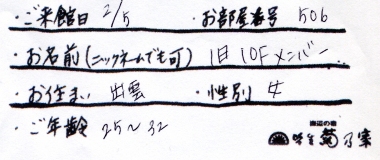 ・ご来館日 2/5 ・お部屋番号 506
・お名前(ニックネームでも可) 1日10Fメンバー
・お住まい 出雲 ・性別 女
・ご年齢 25~32
海辺の宿